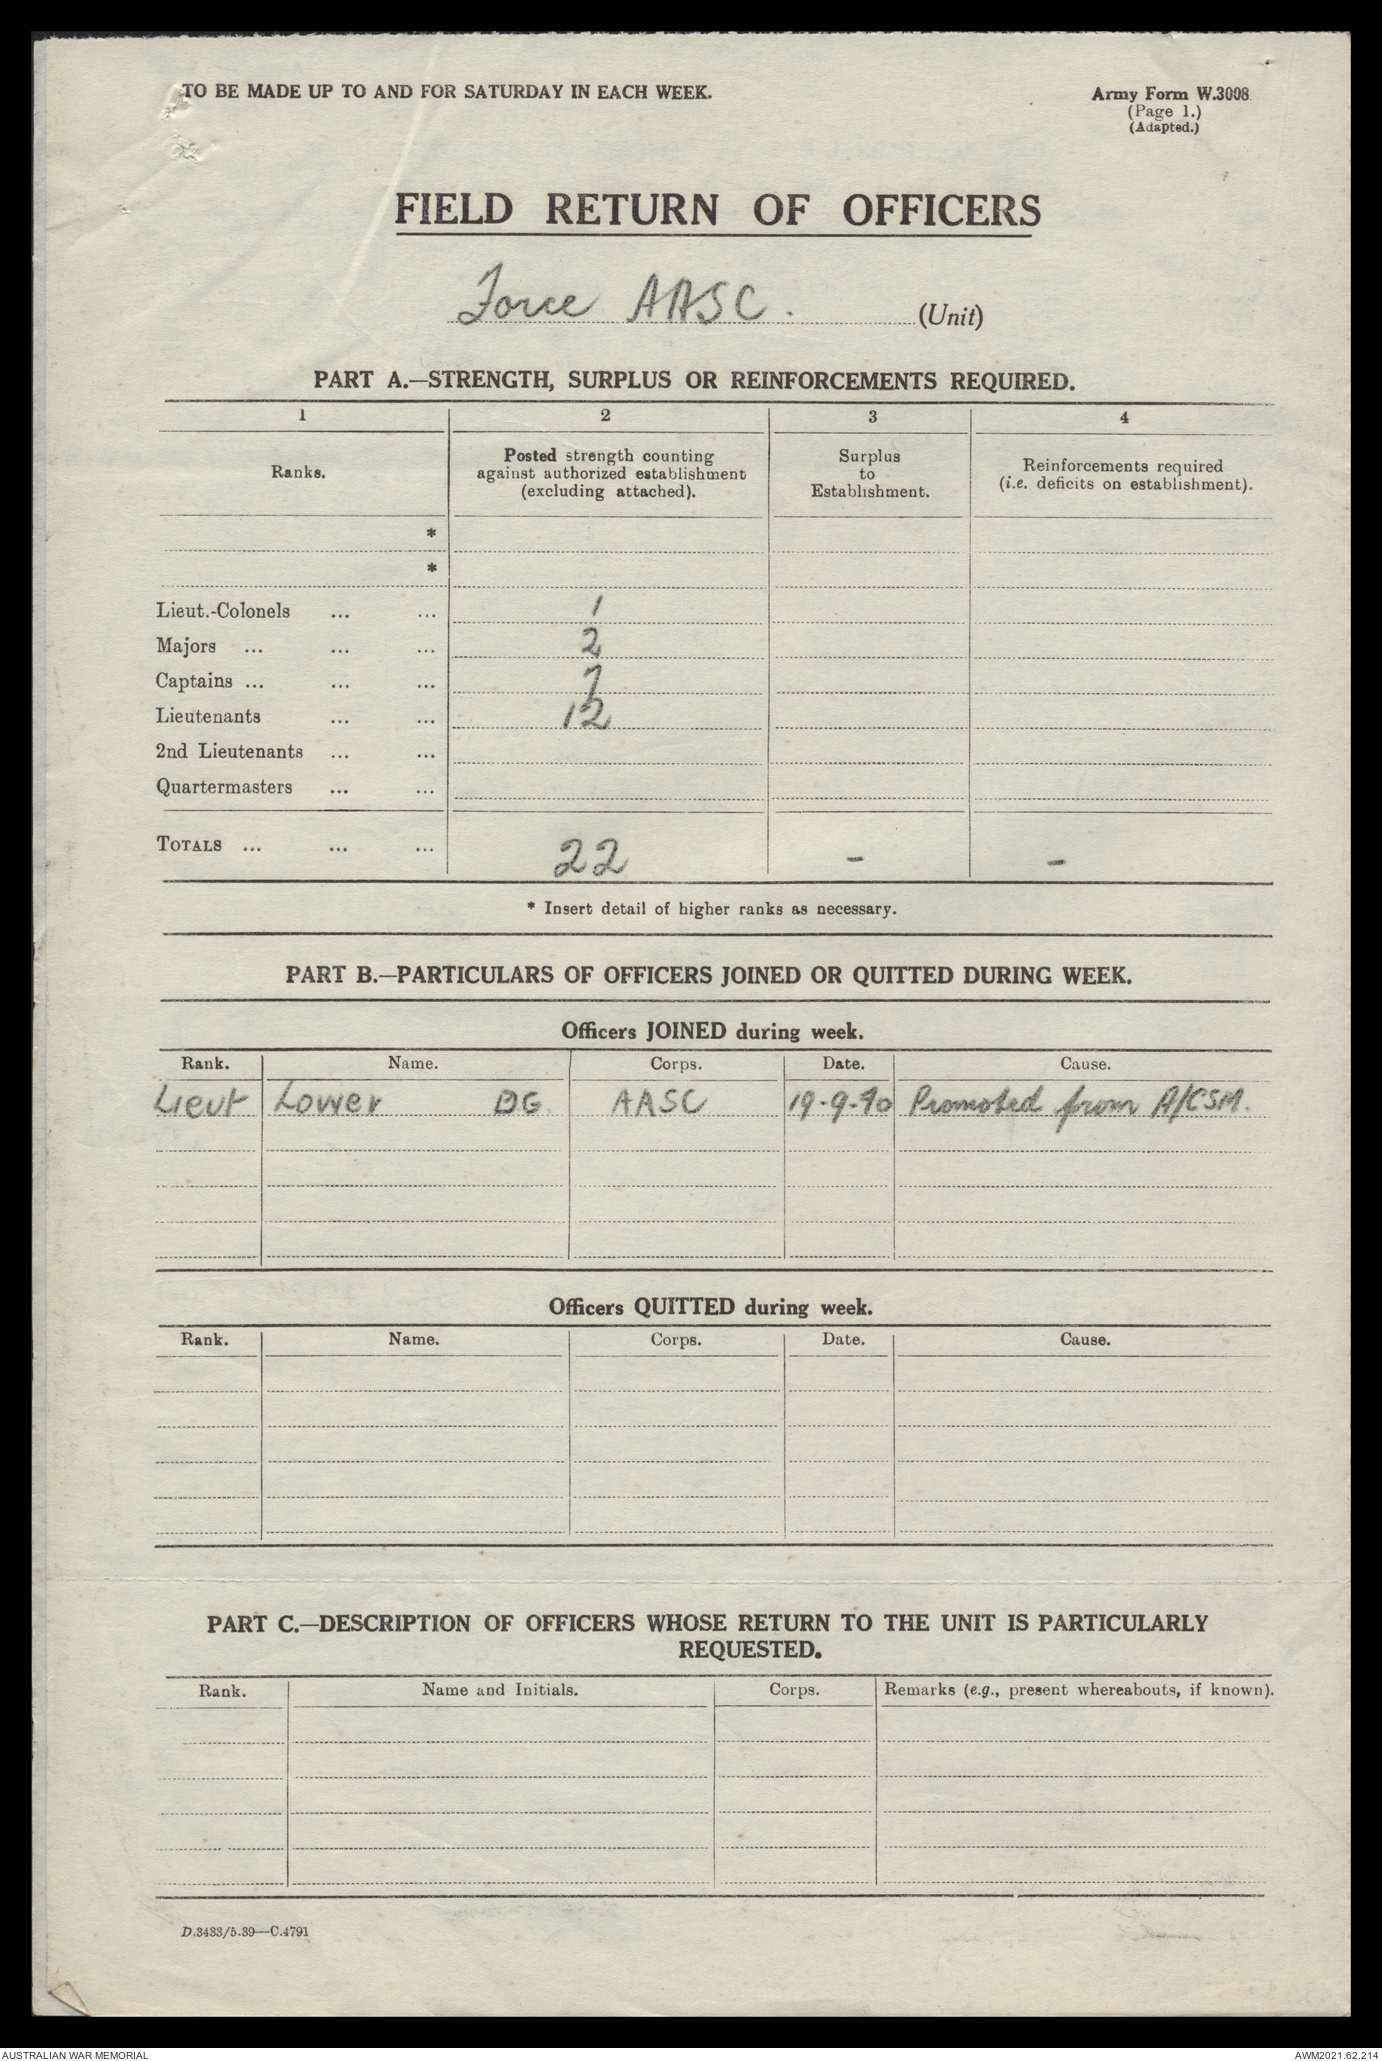 TO BE MADE UP TO AND FOR SATURDAY IN EACH WEEK.
Army Form W.3008
(Page 1.)
(Adapted.)
FIELD RETURN OF OFFICERS
Force AASC. (Unit)
PART A.—STRENGTH, SURPLUS OR REINFORCEMENTS REQUIRED.
1 2 3 4
Ranks.
Posted strength counting
against authorized establishment
(excluding attached).
Surplus
to
Establishment.
Reinforcements required
(i.e. deficits on establishment).
*
*
Lieut.-Colonels ... ... 1
Majors ... ... ... 2
Captains ... ... ... 7
Lieutenants ... ... 12
2nd Lieutenants ... ...
Quartermasters ... ...
TOTALS ... ... ... 22 - -
* Insert detail of higher ranks as necessary.
PART B.—PARTICULARS OF OFFICERS JOINED OR QUITTED DURING WEEK.
Officers JOINED during week.
Rank. Name. Corps. Date. Cause.
Lieut Lower DG. AASC 19-9-40 Promoted from A/CSM.
Officers QUITTED during week.
Rank. Name. Corps. Date. Cause.
PART C.—DESCRIPTION OF OFFICERS WHOSE RETURN TO THE UNIT IS PARTICULARLY
REQUESTED.
Rank. Name and Initials. Corps. Remarks (e.g., present whereabouts, if known).
D.3433/5.39—C.4791
AUSTRALIAN WAR MEMORIAL
AWM2021.62.214